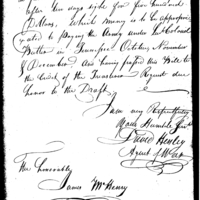 after ten days sight for five hundred
Dollars, Which money is to be appropri
ated to paying the Army under Colonel
Butler in Tennessee October, November
& December. And having passed the Bill to
the Credit of the Treasurer Request due
honor to the Draft.
I am very Respectfully
Your Humble Servt
David Henley
Agent of War
The Honorable
James McHenry